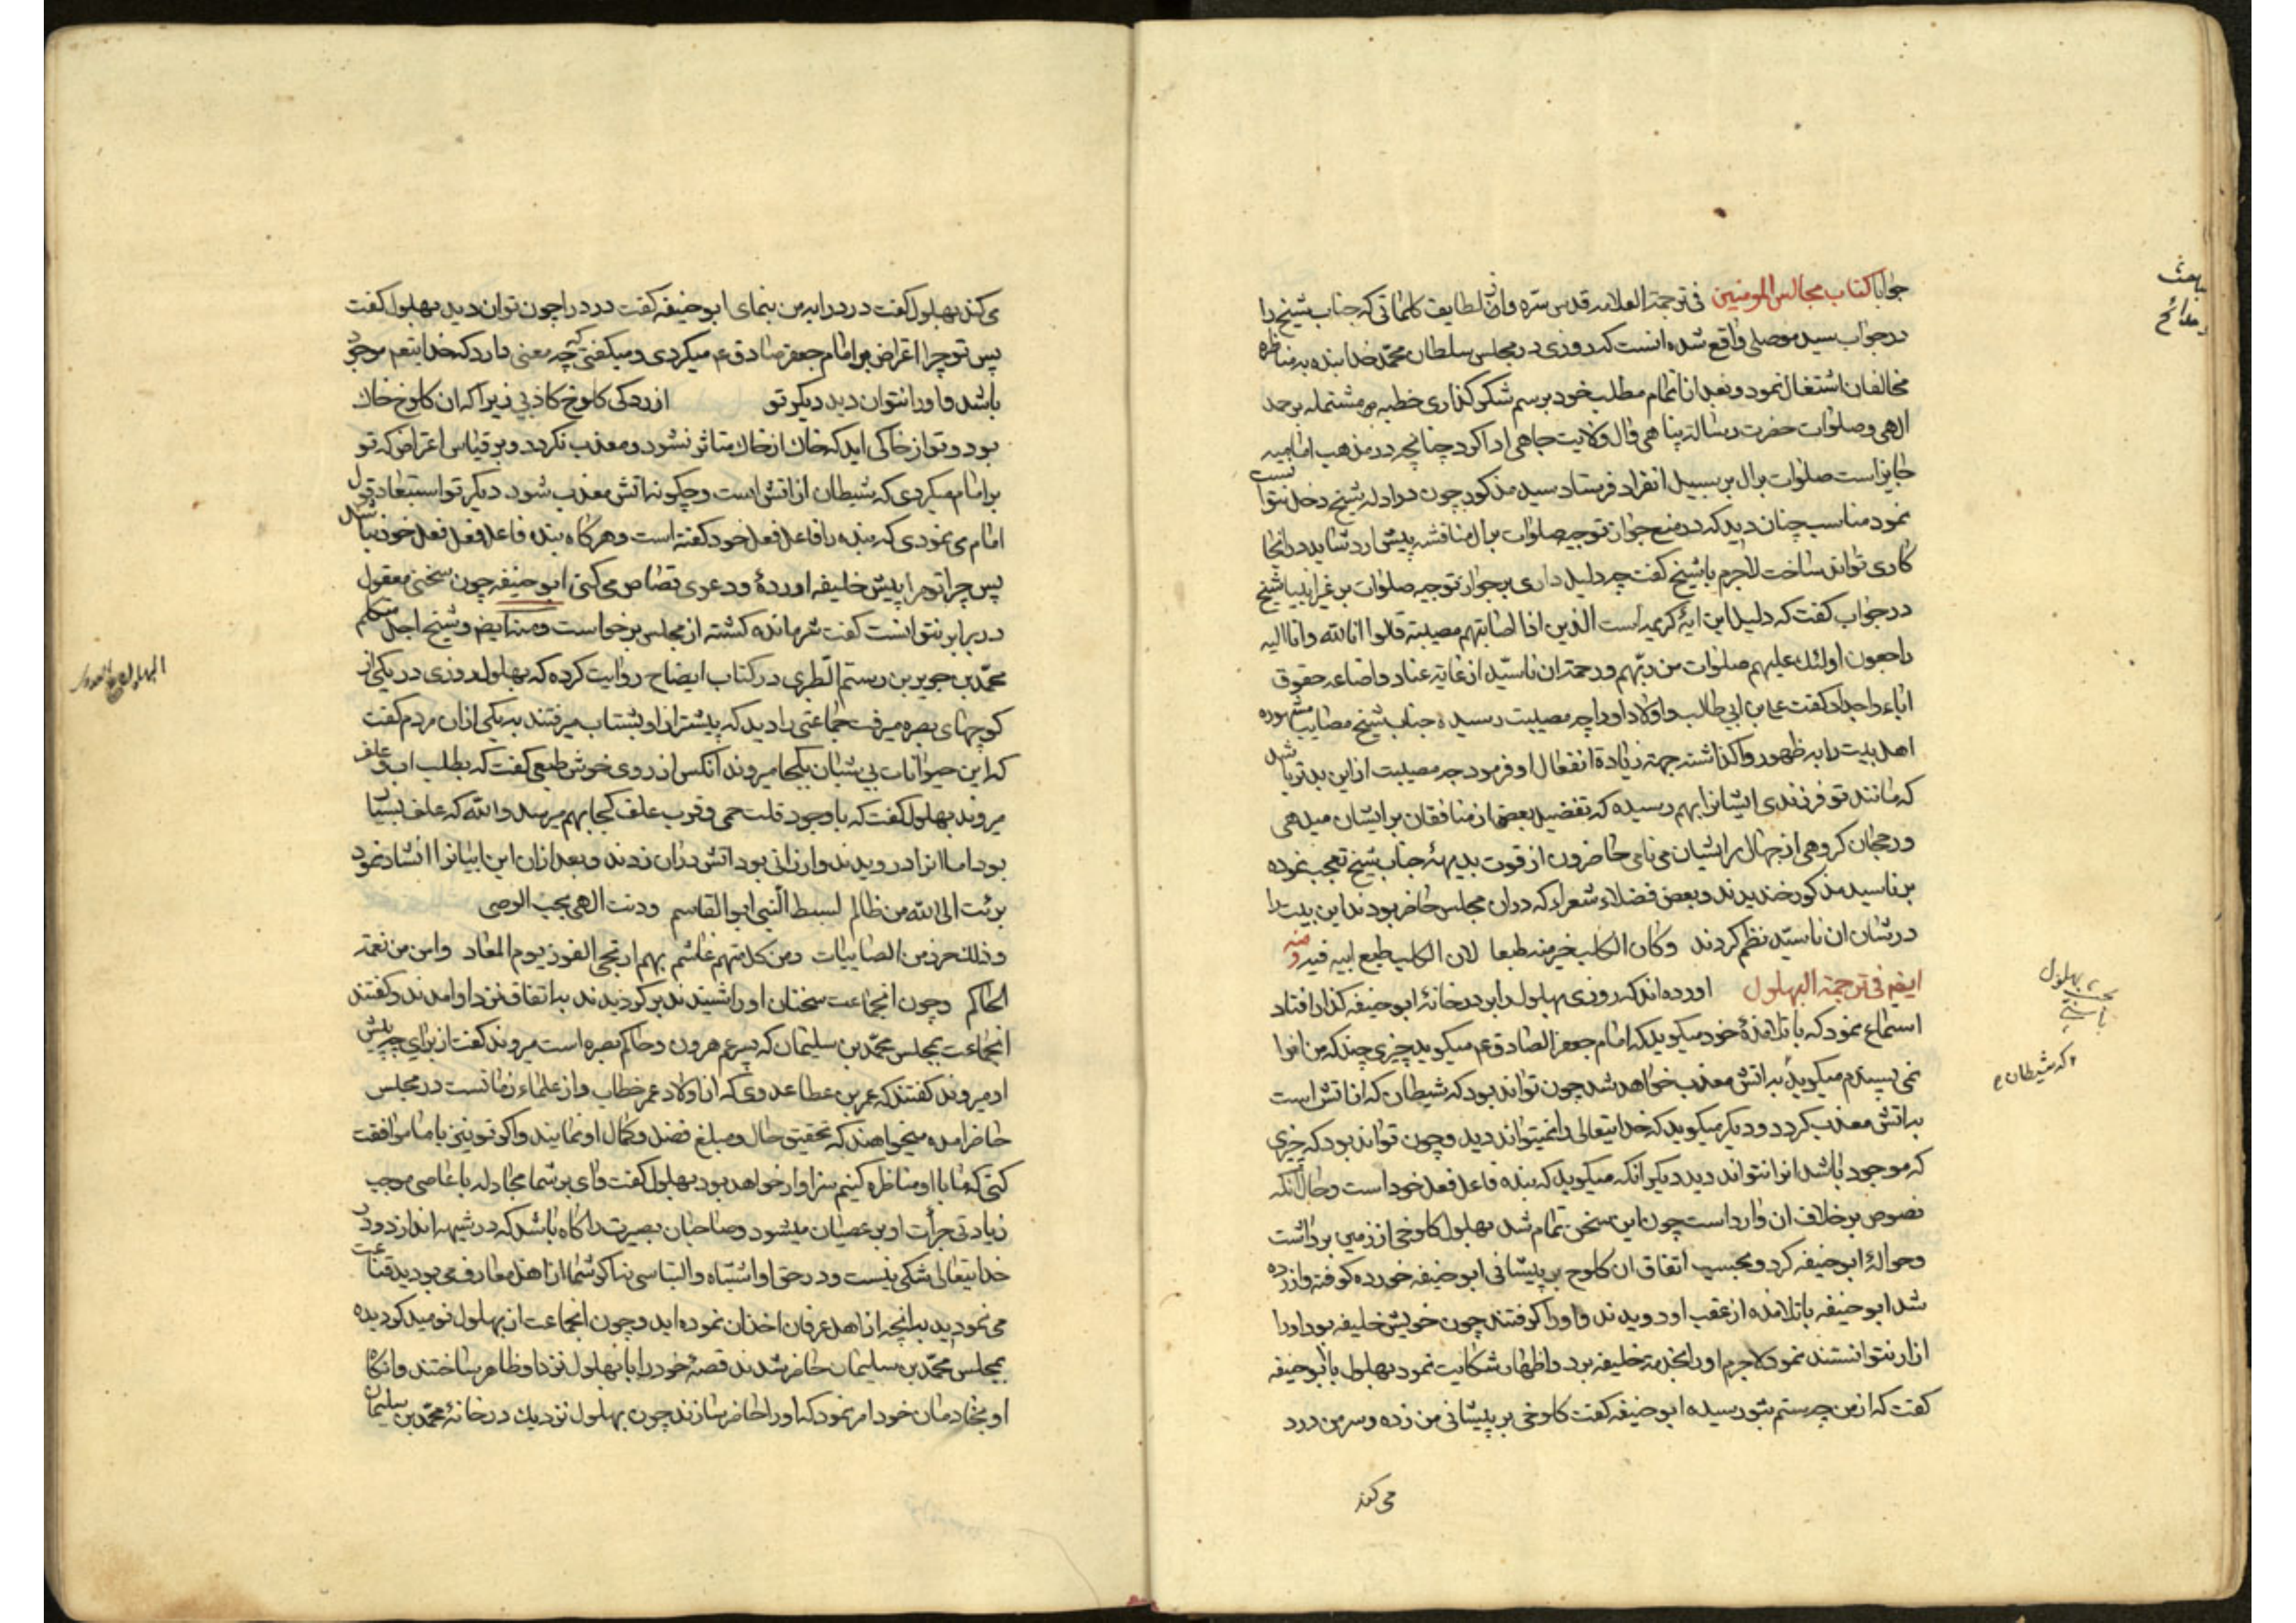 جوابا کتاب مجالس المومنین فی ترجمة العلامه قدس سره واز لطایف کلماتی که جناب شیخ را
در جواب سید موصلی واقع شده انست که روزی در مجلس سلطان محمد خدابنده به مناظره
مخالفان اشتغال نمود و بعد از اتمام مطلب خود برسم شکر کذاری خطبه مشتمله بر حمد
الهی و صلوات حضرت رسالة پناهی وال ولایت جاهی ادا کرد چنانچه در مذهب امامیه
جایز است صلوات برال بر سبیل انفراد فرستاد سید مذکور چون در ادله شیخ دخل نتوانست
نمود مناسب چنان دید که در منع جواز توجیه صلوات برال مناقشه پیش ارد شاید در انجا
کاری تواند ساخت لاجرم با شیخ کفت چه دلیل داری بر جواز توجیه صلوات بر غیر انبیا شیخ
در جواب کفت که دلیل این ایهٔ کریمه است الذین اذا اصابتهم مصیبة قالوا انا لله وانا الیه
راجعون اولئک علیهم صلوات من ربهم ورحمة ان ناسید از غایة عناد واضاعه حقوق
اباء و اجداد کفت علی بن ابی طالب و اولاد او را چه مصیبت رسیده جناب شیخ مصایب مشهوره
اهل بیت را به ظهور واکذاشته جهة زیادة انفعال او فرمود چه مصیبت از این بدتر باشد
که مانند تو فرزندی ایشانرا بهم رسیده که تفضیل بعضی از منافقان بر ایشان میدهی
ورجحان کروهی از جهال بر ایشان می نامی حاضرون از قوت بدیههٔ جناب شیخ تعجب نموده
بر ناسید مذکور خندیدند و بعض فضلاء شعراء که دران مجلس حاضر بودند این بیت را
در شان ان ناسید نظم کردند وکان الکلب خیر منه طبعا لان الکلب طبع ابیه فیه
ایضم فی ترجمة البهلول اورده اند که روزی بهلول را بر در خانهٔ ابوحنیفه کذار افتاد
استماع نمود که با تلامذهٔ خود میکوید که امام جعفر الصادق عم میکوید چیزی چند که من انرا
نمی پسندم میکوید به اتش معذب خواهد شد چون تواند بود که شیطان که از اتش است
به اتش معذب کردد و دیکر میکوید که خدایتعالی را نمیتواند دید و چون تواند بود که چیزی
که موجود باشد انرا نتواند دید دیکر انکه میکوید که بنده فاعل فعل خود است و حال انکه
نصوص بر خلاف ان وارد است چون این سخن تمام شد بهلول کلوخی از زمین برداشت
وحوالهٔ ابوحنیفه کرد و بحسب اتفاق ان کلوخ بر پیشانی ابوحنیفه خورده کوفته وازرده
شد ابوحنیفه با تلامذه از عقب او دویدند و او را کرفتند چون خویش خلیفه بود او را
ازار نتوانستند نمود لاجرم او را بخدمة خلیفه برد و اظهار شکایت نمود بهلول با ابوحنیفه
کفت که از من چه ستم بتو رسیده ابوحنیفه کفت کلوخی بر پیشانی من زده و سر من درد
می کند
بحث بهلول
که شیطان
می کند بهلول کفت درد را به من بنمای ابوحنیفه کفت درد را چون توان دید بهلول کفت
پس تو چرا اعتراض بر امام جعفر صادق عم میکردی و میکفتی که چه معنی دارد که خدایتعم موجود
باشد و او را نتوان دید دیکر تو از درد کی کلوخ کاذبی زیرا که ان کلوخ خاک
بود و تو از خاکی اید که خاک از خاک متاثر نشود و معذب نکردد و بر قیاس اعتراض که تو
بر امام میکردی که شیطان از اتش است و چکونه اتش معذب شود دیکر تو استبعاد قول
امام می نمودی که بنده را فاعل فعل خود کفته است و هر کاه بنده فاعل فعل خود نباشد
پس چرا تو مرا پیش خلیفه اوردهٔ و دعوی قصاص می کنی ابوحنیفه چون سخنی معقول
در برابر نتوانست کفت شرمانده کشته از مجلس برخواست ومنه ایضم و شیخ اجل متکلم
محمد بن جریر بن رستم الطبری در کتاب ایضاح روایت کرده که بهلول روزی در یکی از
کوچهای بصره میرفت جماعتی را دید که پیشتر از او بشتاب میرفتند به یکی ازان مردم کفت
که این حیوانات بی شبان بکجا میروند انکس از روی خوش طبعی کفت که بطلب اب و علف
میروند بهلول کفت که با وجود قلت حمی و قرب علف کجا بهم میرسد والله که علف بسیار
بود اما انرا درویدند وارزانی بود اتش دران زدند و بعد ازان این ابیاترا انشاد نمود
برئت الی الله من ظالم لسبط النبی ابو القاسم ودنت الهی بحب الوصی
وذلک حرز من الصابیات ومن کل متهم غاشم بهم ارتجی الفوز یوم المعاد وامن من نعمة
الحاکم وچون انجماعت سخنان او را شنیدند برکردیدند به اتفاق نزد او امدند و کفتند
انجماعت بمجلس محمد بن سلیمان که پسر عم هرون و حاکم بصره است میروند کفت از برای چه پیش
او میروند کفتند که عمر بن عطا عدوی که از اولاد عمر خطاب و از علماء زمانست در مجلس
حاضر امده میخواهند که تحقیق حال و مبلغ فضل و کمال او نمایند و اکر تو نیز با ما موافقت
کنی که ما با او مناظره کنیم سزاوار خواهد بود بهلول کفت وای بر شما مجادله با عاصی موجب
زیادتی جرأت او بر عصیان میشود و صاحبان بصیرت را کاه باشد که در شبهه اندازد و در
خدایتعالی شکی نیست و در حق او اشتباه و التباسی نه اکر شما از اهل معارف می بودید قناعت
می نمودید به انچه از اهل عرفان اخذ ان نموده اید و چون انجماعت از بهلول نومید کردیده
بمجلس محمد بن سلیمان حاضر شدند قصهٔ خود را با بهلول نزد او ظاهر ساختند وانکاه
او بخادمان خود امر نمود که او را حاضر سازند چون بهلول نزدیک در خانهٔ محمد بن سلیمان